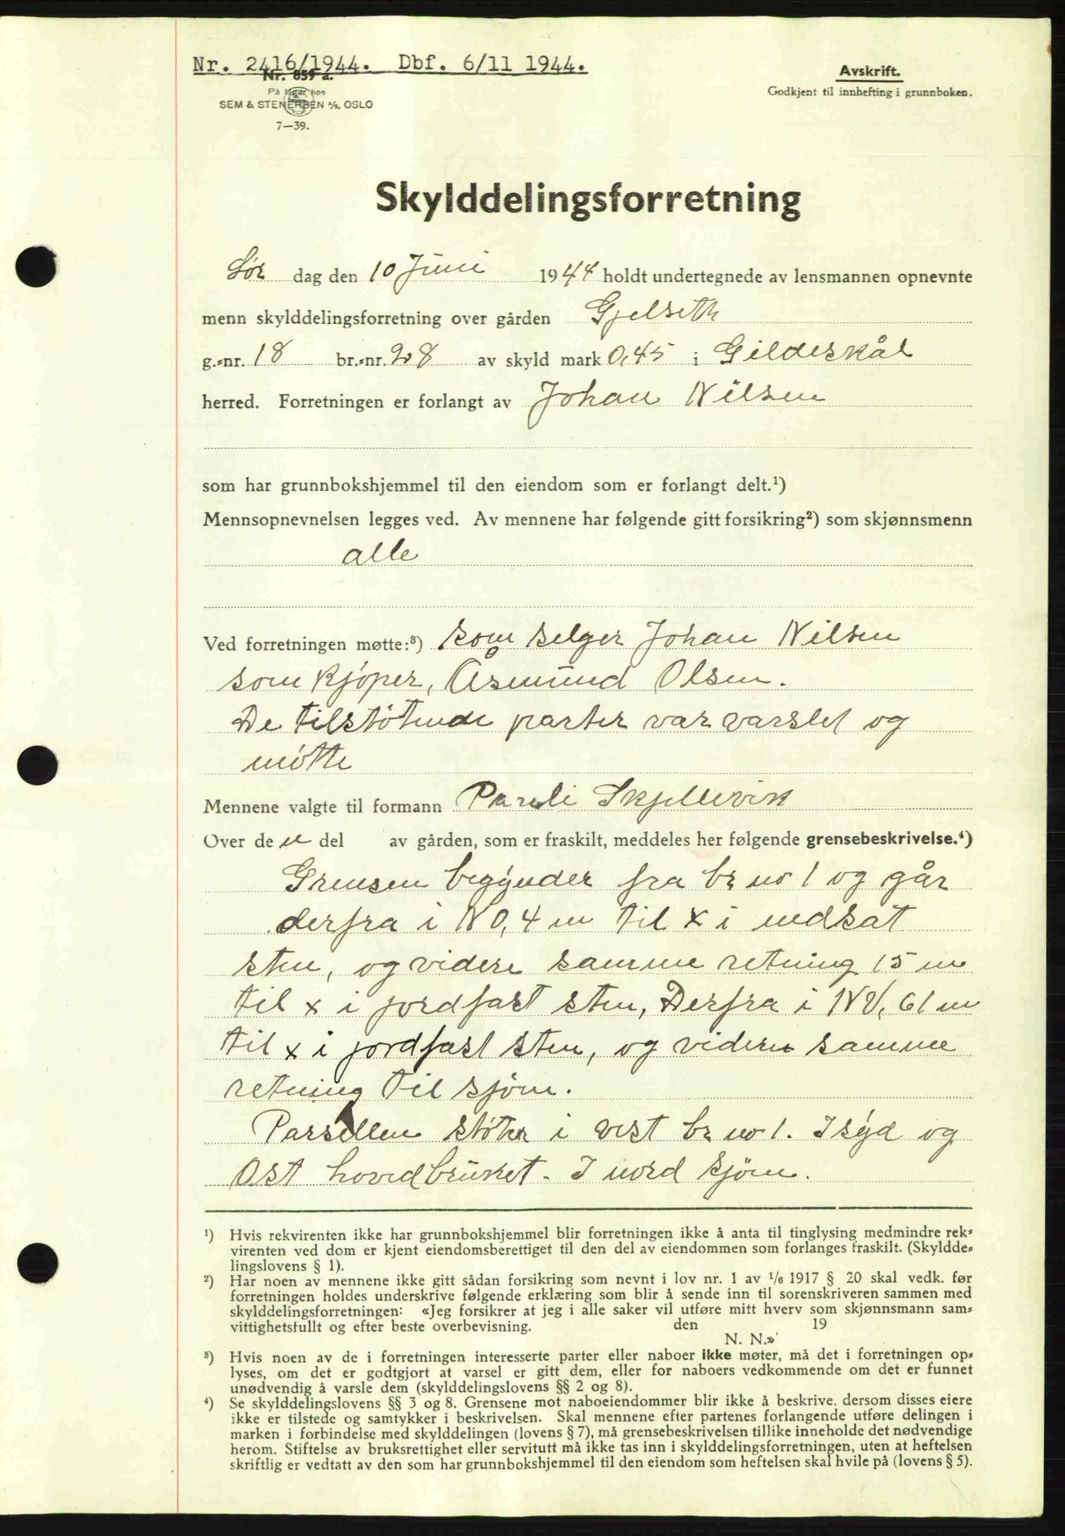 Nr. 2416/1944. Dbf. 6/11 1944.
Nr. 859 a.
På lager hos
SEM & STENERSEN A/S, OSLO
7—39.
Avskrift.
Godkjent til innhefting i grunnboken.
Skylddelingsforretning
Lör dag den 10 Juni 1944 holdt undertegnede av lensmannen opnevnte
menn skylddelingsforretning over gården Gjelseth
g.-nr. 18 br.-nr. 28 av skyld mark 0,45 i Gildeskål
herred. Forretningen er forlangt av Johan Nilsen
som har grunnbokshjemmel til den eiendom som er forlangt delt.¹)
Mennsopnevnelsen legges ved. Av mennene har følgende gitt forsikring²) som skjønnsmenn
alle
Ved forretningen møtte:³) som selger Johan Nilsen
som kjöper, Åsmund Olsen.
De tilstötende parter var varslet og
mötte
Mennene valgte til formann Pareli Skjellevik
Over de n del av gården, som er fraskilt, meddeles her følgende grensebeskrivelse.⁴)
Grensen begynder fra br no 1 og går
derfra i NO, 4 m til x i nedsat
sten, og videre samme retning 15 m
til x i jordfast sten, Derfra i NV, 61 m
til x i jordfast sten, og videre samme
retning til sjöen.
Parsellen stöter i vest br no 1. I syd og
Ost hovedbruket. I nord sjöen.
¹) Hvis rekvirenten ikke har grunnbokshjemmel blir forretningen ikke å anta til tinglysing medmindre rek-
virenten ved dom er kjent eiendomsberettiget til den del av eiendommen som forlanges fraskilt. (Skyldde-
lingslovens § 1).
²) Har noen av mennene ikke gitt sådan forsikring som nevnt i lov nr. 1 av 1/6 1917 § 20 skal vedk. før
forretningen holdes underskrive følgende erklæring som blir å sende inn til sorenskriveren sammen med
skylddelingsforretningen: «Jeg forsikrer at jeg i alle saker vil utføre mitt hverv som skjønnsmann sam-
vittighetsfullt og efter beste overbevisning. den 19
N. N.»
³) Hvis noen av de i forretningen interesserte parter eller naboer ikke møter, må det i forretningen op-
lyses, om det er godtgjort at varsel er gitt dem, eller for naboers vedkommende om det er funnet
unødvendig å varsle dem (skylddelingslovens §§ 2 og 8).
⁴) Se skylddelingslovens §§ 3 og 8. Grensene mot naboeiendommer blir ikke å beskrive, dersom disses eiere
ikke er tilstede og samtykker i beskrivelsen. Skal mennene efter partenes forlangende utføre delingen i
marken i forbindelse med skylddelingen (lovens § 7), må grensebeskrivelsen tillike inneholde det nødvendige
herom. Stiftelse av bruksrettighet eller servitutt må ikke tas inn i skylddelingsforretningen, uten at heftelsen
skriftlig er vedtatt av den som har grunnbokshjemmel til den eiendom som heftelsen skal hvile på (lovens § 5).